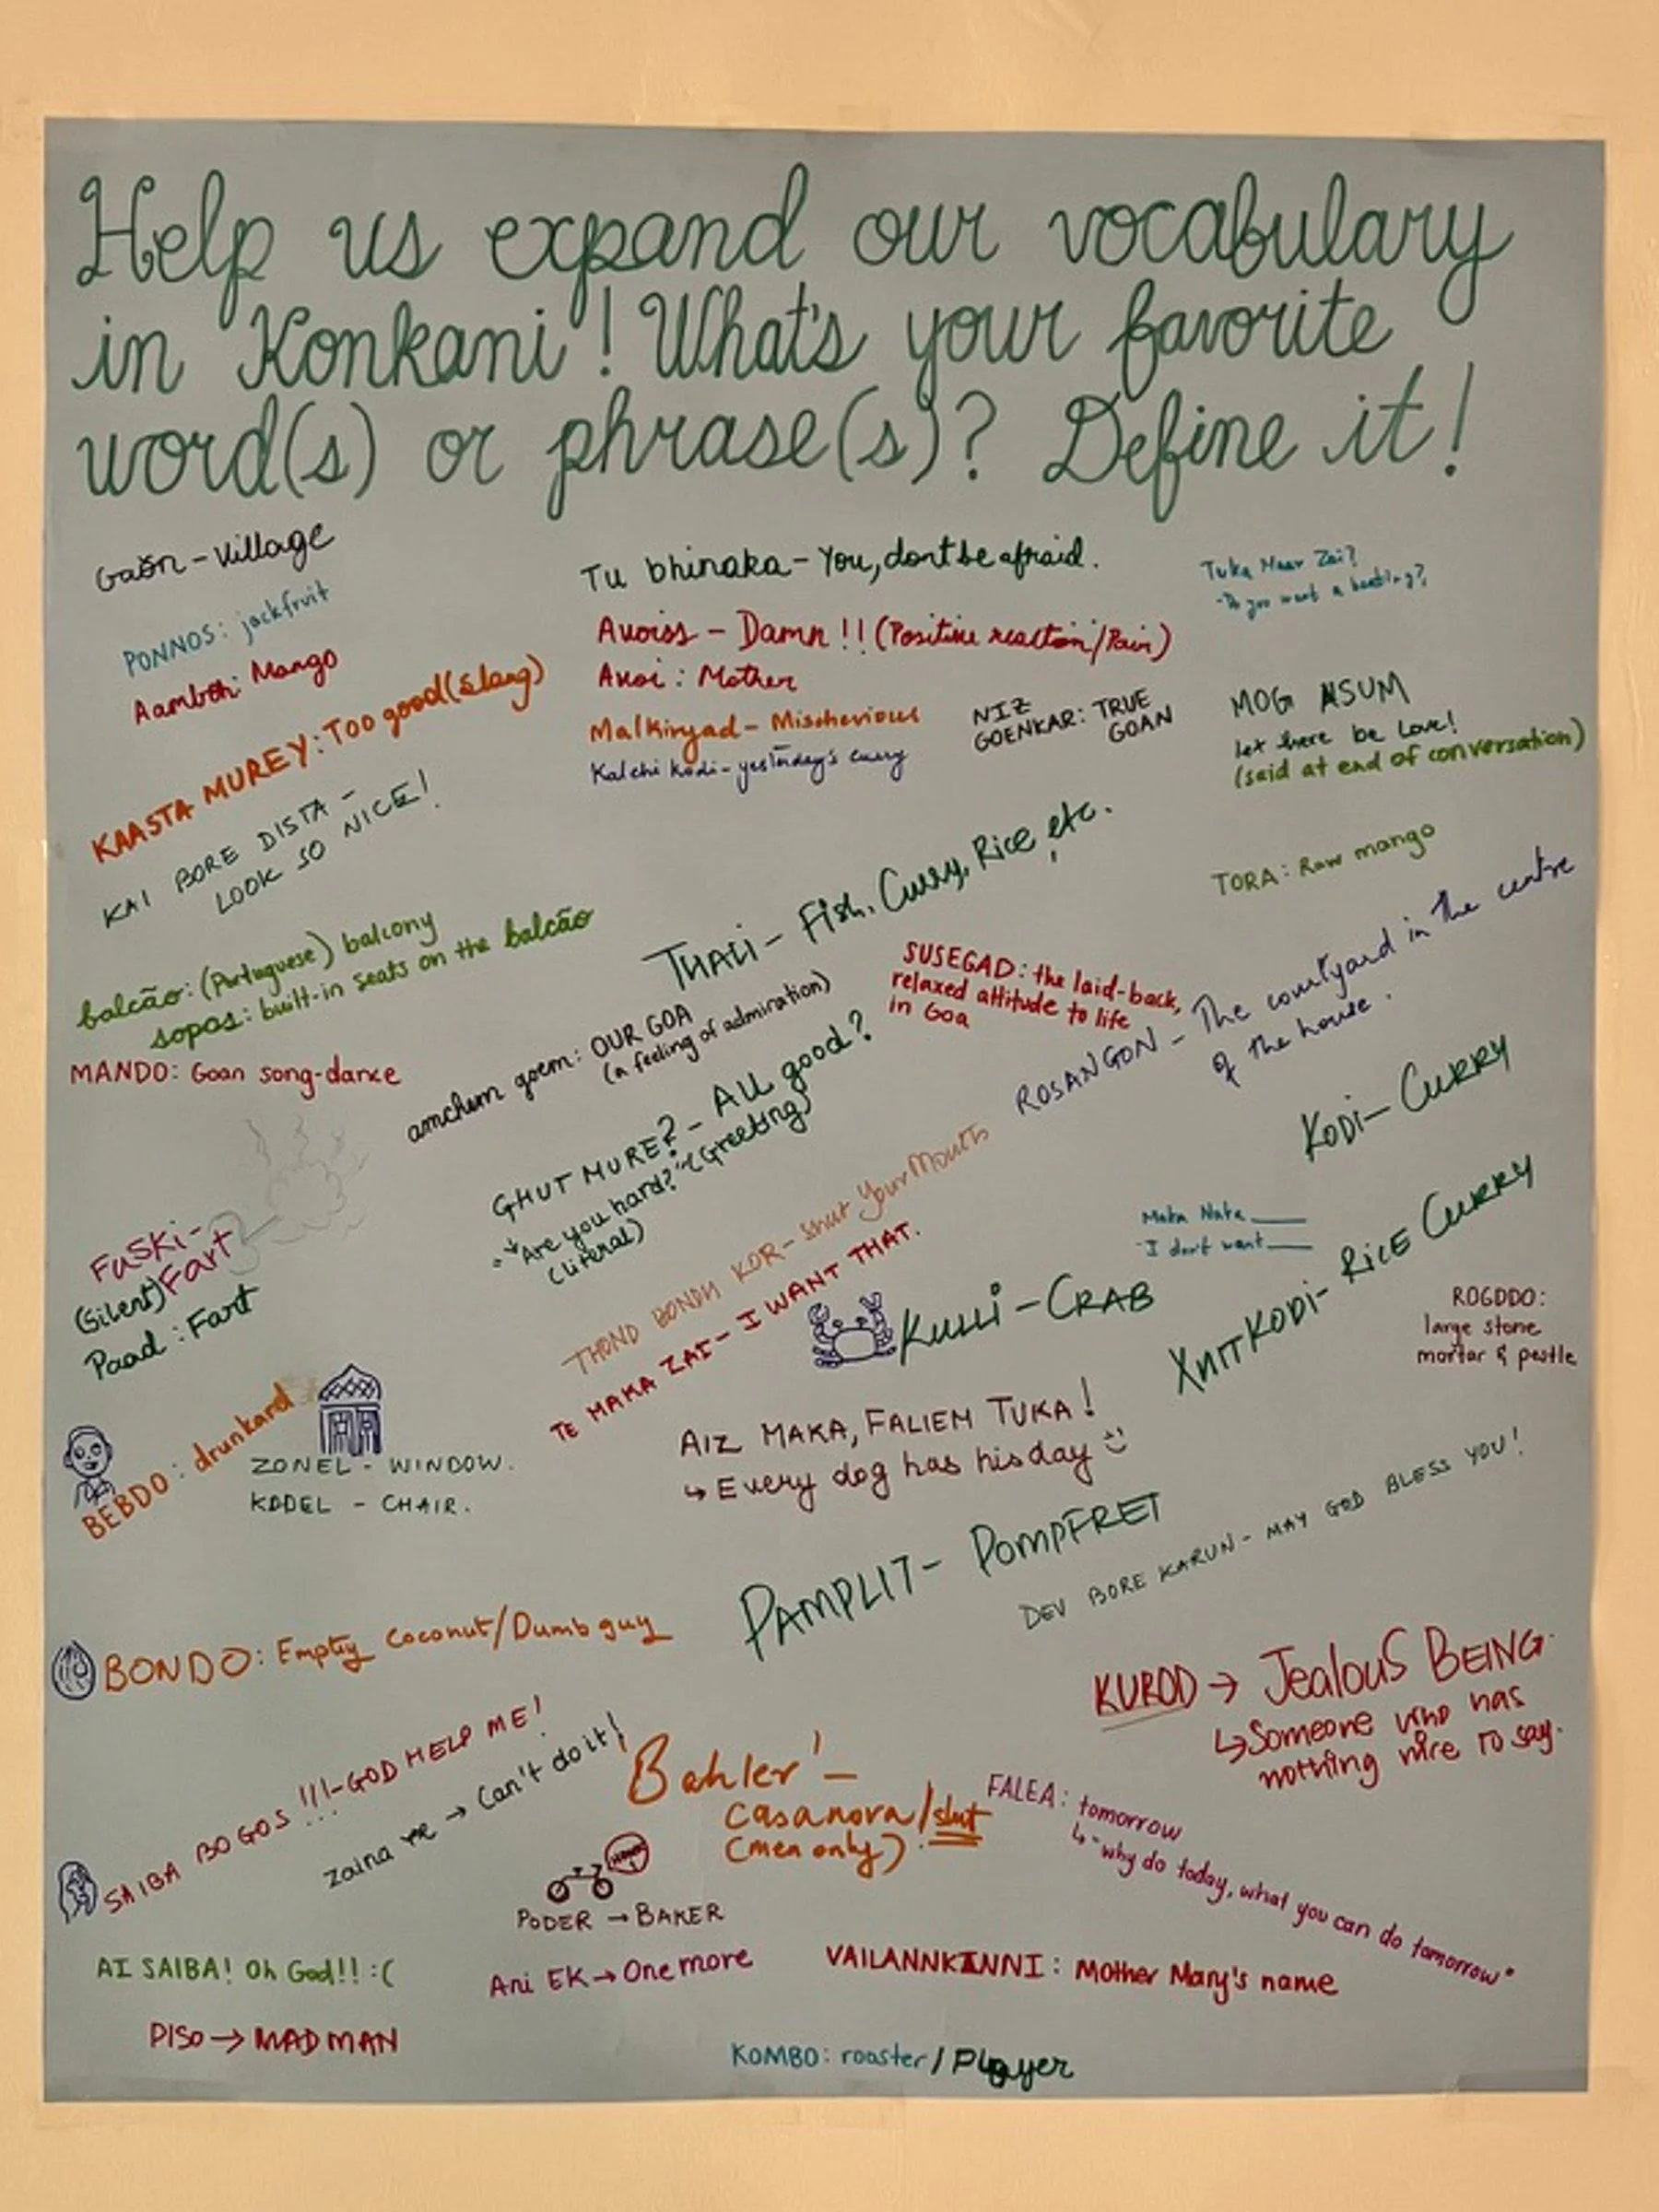 Help us expand our vocabulary
in "Konkani"! What's your favorite
word(s) or phrase(s)? Define it!
Gaõn - Village
PONNOS: jackfruit
Mango
KAASTA MUREY: TOO good (slang)
KAI BORE DISTA -
LOOK SO NICE!
Tu bhinaka - You, dont be afraid.
Avoiss - Damn!! (Positive reaction/Pain)
Avoi: Mother
Malkiryad - Mischevious
Kalchi Kodi - yesterday's curry
NIZ
GOENKAR: TRUE
GOAN
Tuka Maar Zai?
- Do you want a beating?
MOG ASUM
Let there be Love!
(said at end of conversation)
TORA: Raw mango
balcão: (Portuguese) balcony
sopos: built-in seats on the balcão
MANDO: Goan song-dance
THALI - Fish, Curry, Rice, etc.
amchem goem: OUR GOA
(a feeling of admiration)
SUSEGAD: the laid-back,
relaxed attitude to life
in Goa
ROSANGON - The courtyard in the centre
of the house.
GHUT MURE? - ALL good?
"Are you hard?" (Greeting)
(literal)
KODI - CURRY
FUSKI -
(Silent) Fart
Paad: Fart
THOND BONDH KOR - shut your Mouth
TE MAKA ZAI - I WANT THAT.
Maka Naka ____
- I don't want ____
KULLI - CRAB
XHITKODI - RICE CURRY
ROGDDO:
large stone
mortar & pestle
BEBDO: drunkard
ZONEL - WINDOW.
KODEL - CHAIR.
AIZ MAKA, FALIEM TUKA!
↳ Every dog has his day :)
PAMPLIT - POMPFRET
DEV BORE KARUN - MAY GOD BLESS YOU!
BONDO: Empty Coconut/Dumb guy
KUROD → JEALOUS BEING
↳ Someone who has
nothing nice to say.
SAIBA BOGOS!!! - GOD HELP ME!
Zaina re → Can't do it!
Bahler' -
casanova/slut
(men only)
FALEA: tomorrow
↳ "why do today, what you can do tomorrow"
PODER → BAKER
AI SAIBA! Oh God!! :(
Ani EK → One more
VAILANNKANNI: Mother Mary's name
PISO → MAD MAN
KOMBO: rooster / Player